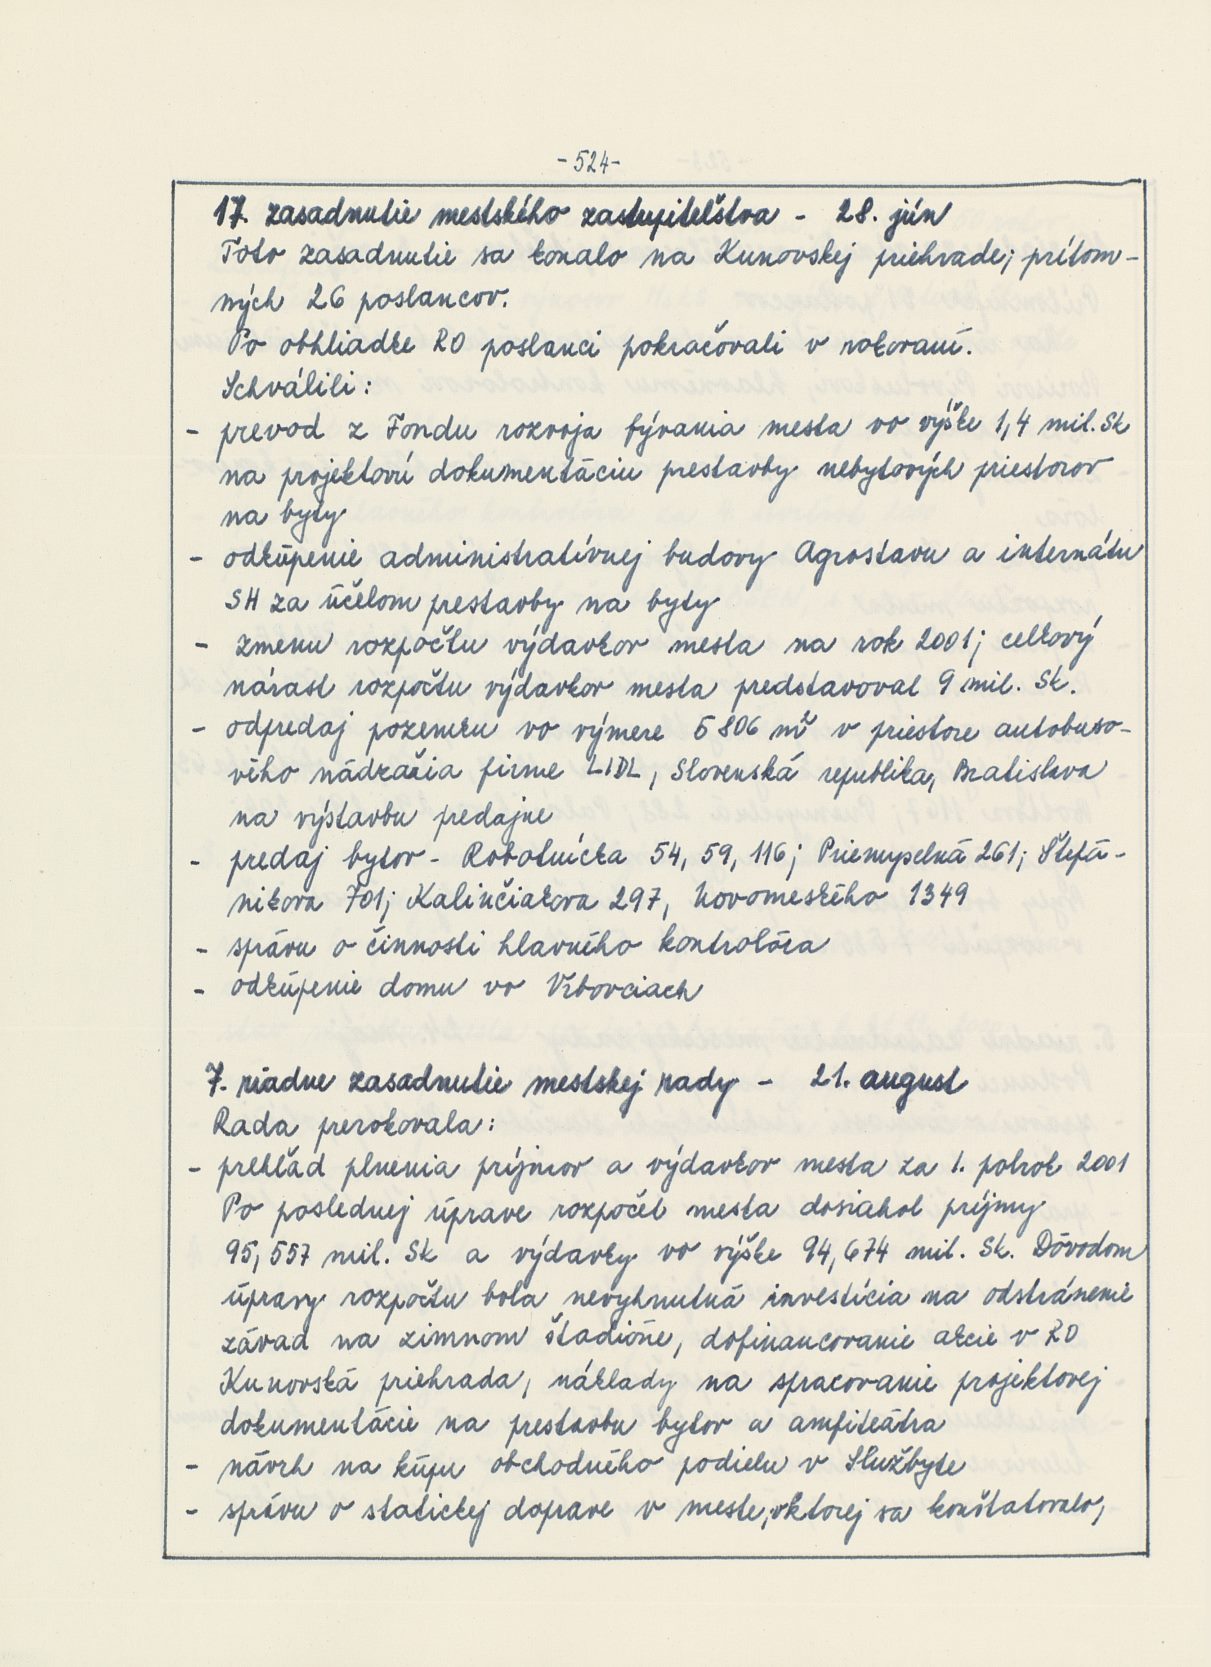 -524-
17. zasadnutie mestského zastupiteľstva - 28. jún
Toto zasadnutie sa konalo na Kunovskej priehrade; prítom-
ných 26 poslancov.
Po obhliadke RO poslanci pokračovali v rokovaní.
Schválili:
- prevod z Fondu rozvoja bývania mesta vo výške 1,4 mil. Sk
na projektovú dokumentáciu prestavby nebytových priestorov
na byty
- odkúpenie administratívnej budovy Agrostavu a internátu
SH za účelom prestavby na byty
- zmenu rozpočtu výdavkov mesta na rok 2001; celkový
nárast rozpočtu výdavkov mesta predstavoval 9 mil. Sk.
- odpredaj pozemku vo výmere 5 806 m² v priestore autobuso-
vého nádražia firme LIDL, Slovenská republika, Bratislava
na výstavbu predajne
- predaj bytov - Robotnícka 54, 59, 116; Priemyselná 261; Štefá-
nikova 701; Kalinčiakova 297, Novomeského 1349
- správu o činnosti hlavného kontrolóra
- odkúpenie domu vo Vrbovciach
7. riadne zasadnutie mestskej rady - 21. august
Rada prerokovala:
- prehľad plnenia príjmov a výdavkov mesta za 1. polrok 2001
Po poslednej úprave rozpočet mesta dosiahol príjmy
95,557 mil. Sk a výdavky vo výške 94,674 mil. Sk. Dôvodom
úpravy rozpočtu bola nevyhnutná investícia na odstránenie
závad na zimnom štadióne, dofinancovanie akcie v RO
Kunovská priehrada, náklady na spracovanie projektovej
dokumentácie na prestavbu bytov a amfiteátra
- návrh na kúpu obchodného podielu v Službyte
- správu o statickej doprave v meste, v ktorej sa konštatovalo,